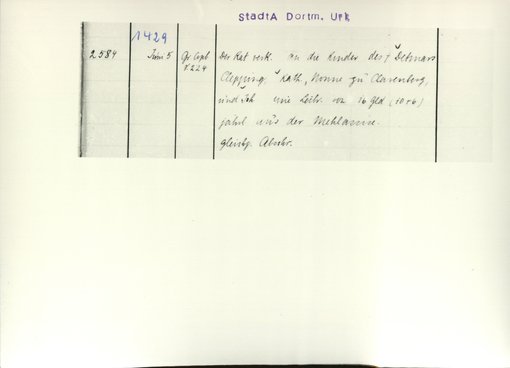 StadtA Dortm, Urk
1429
2584 Juni 5 Gr. Copb. Der Rat verk. an die Kinder des † Detmars
f. 224 Clepping, Kath., Nonne zu Clarenberg,
und Joh. eine Leibr. von 16 Gld (10+6)
jährl. aus der Mehlamme.
gleichz. Abschr.